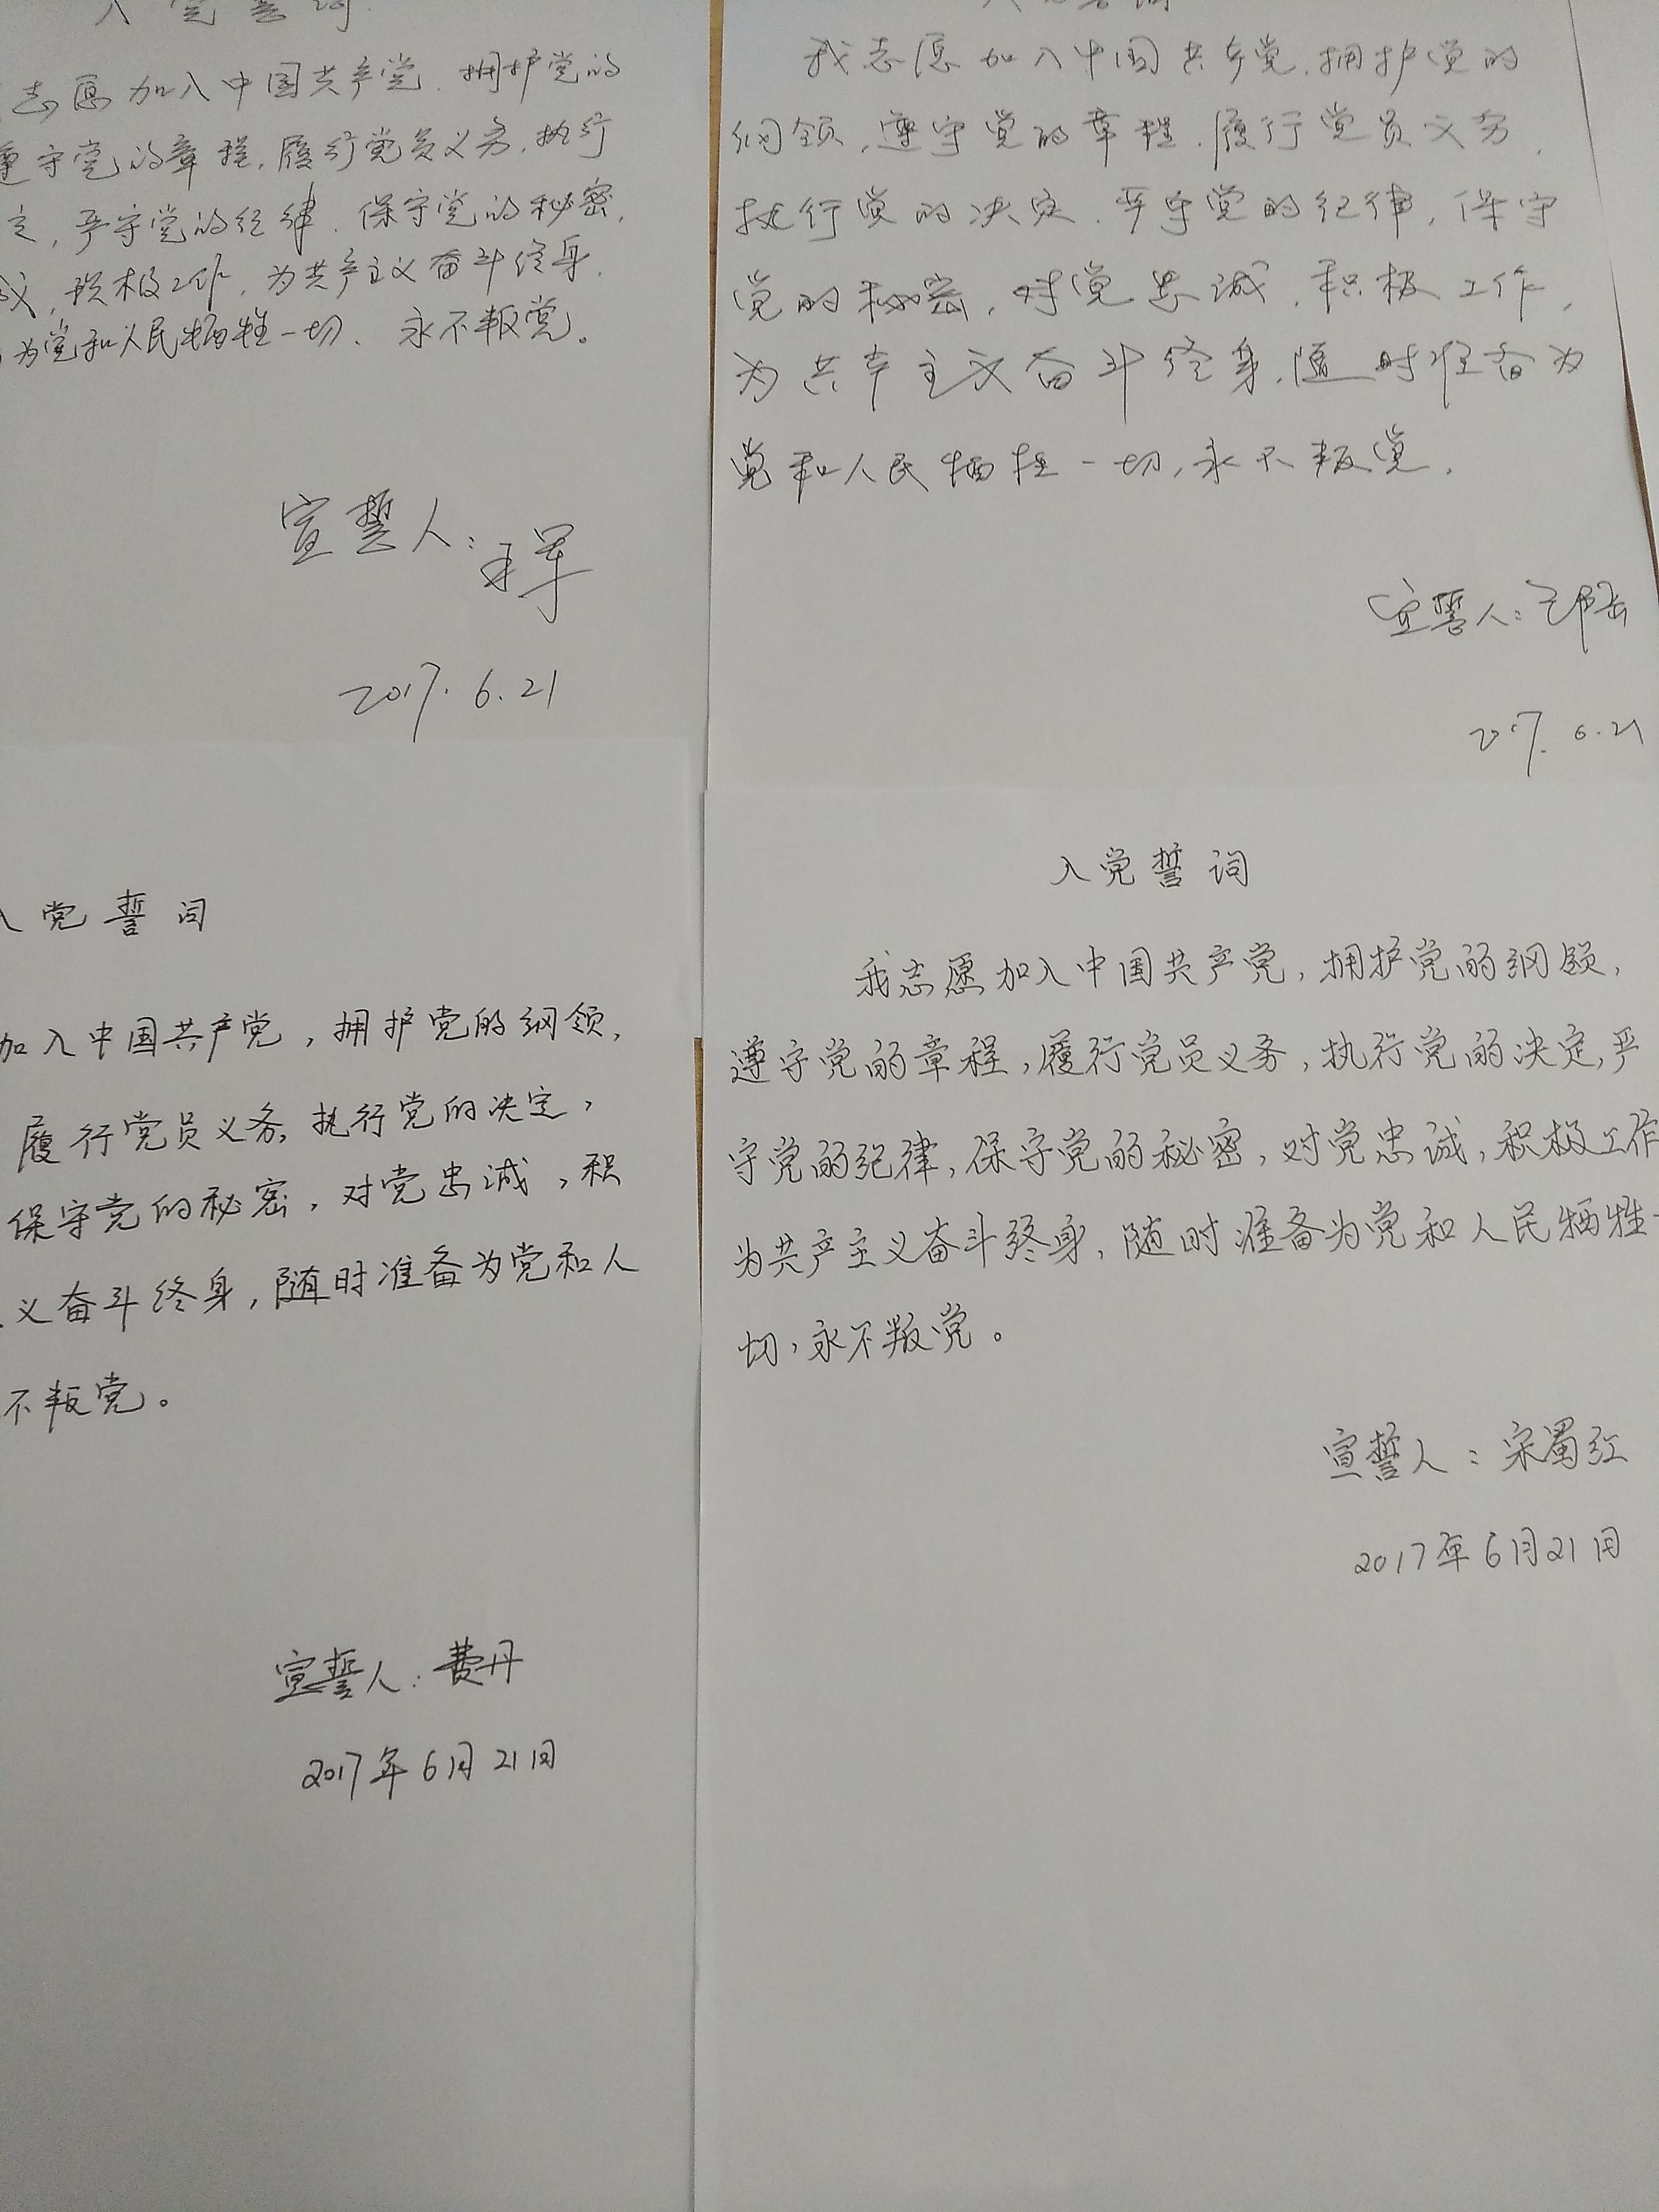 入党誓词
志愿加入中国共产党.拥护党的
遵守党的章程,履行党员义务,执行
定,严守党的纪律.保守党的秘密,
诚,积极工作,为共产主义奋斗终身.
为党和人民牺牲一切、永不叛党。
宣誓人:
2017.6.21
入党誓词
我志愿加入中国共产党,拥护党的
纲领,遵守党的章程.履行党员义务,
执行党的决定.严守党的纪律,保守
党的秘密,对党忠诚,积极工作,
为共产主义奋斗终身,随时准备为
党和人民牺牲一切,永不叛党.
宣誓人:
2017.6.21
入党誓词
加入中国共产党,拥护党的纲领,
履行党员义务,执行党的决定,
保守党的秘密,对党忠诚,积
义奋斗终身,随时准备为党和人
不叛党。
宣誓人:费丹
2017年6月21日
入党誓词
我志愿加入中国共产党,拥护党的纲领,
遵守党的章程,履行党员义务,执行党的决定,严
守党的纪律,保守党的秘密,对党忠诚,积极工作
为共产主义奋斗终身,随时准备为党和人民牺牲一
切,永不叛党。
宣誓人:宋蜀红
2017年6月21日